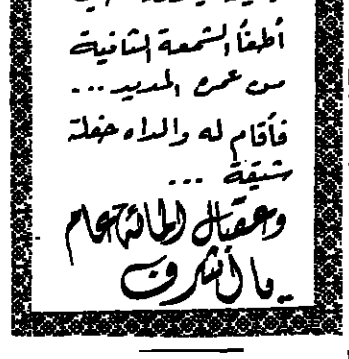 أطفأ الشمعة الثانية
من عمره المديد ...
فأقام له والداه حفلة
شيقة ...
وعقبال المائة عام
يا أشرف